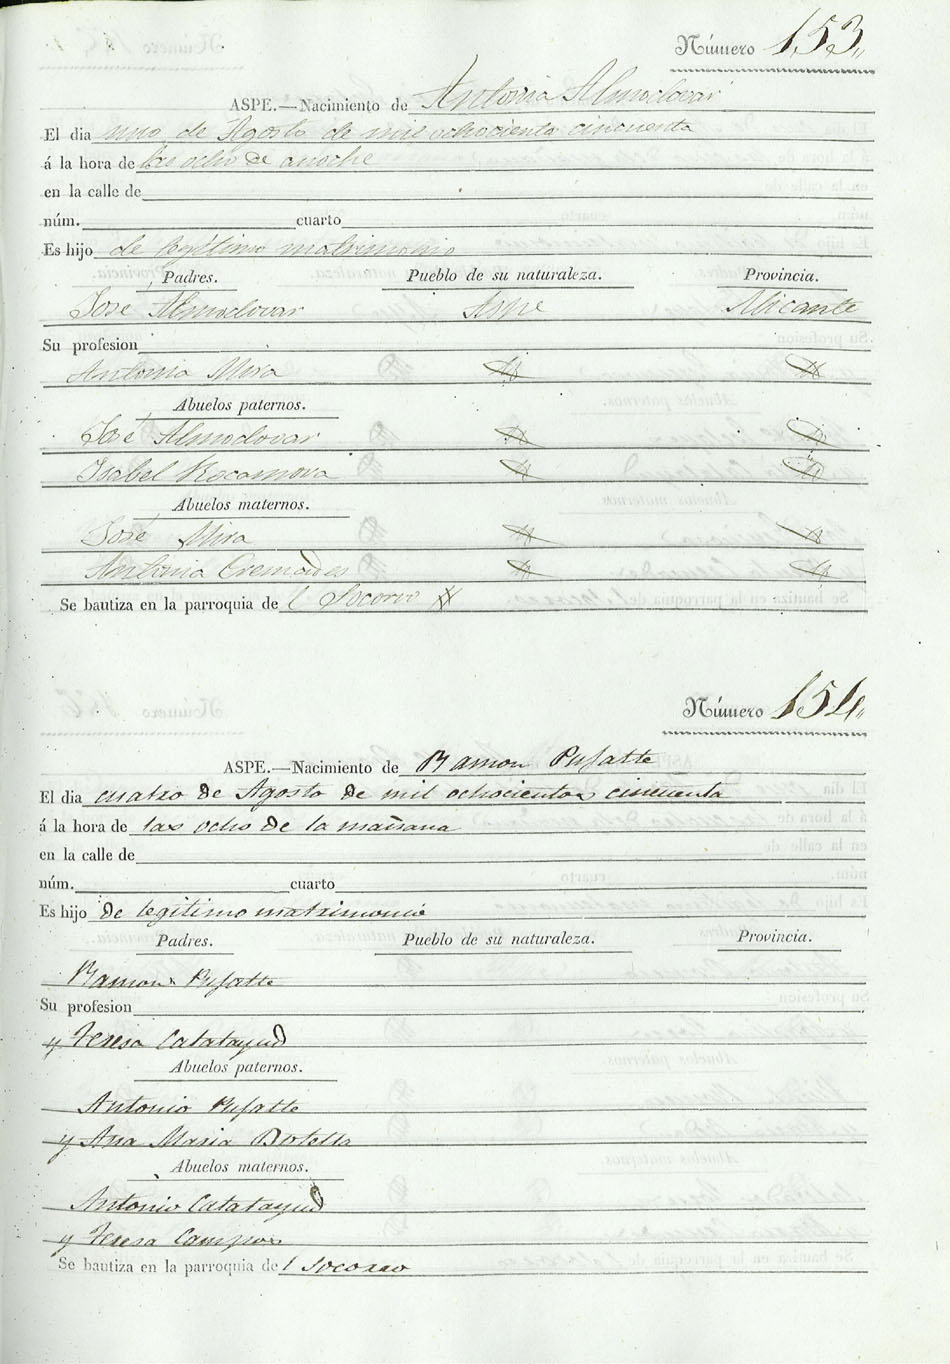 Número 153
ASPE.—Nacimiento de Antonia Almodovar
El dia uno de Agosto de mil ochocientos cincuenta
á la hora de las ocho de anoche
en la calle de
núm. cuarto
Es hijo de legítimo matrimonio
Padres. Pueblo de su naturaleza. Provincia.
José Almodovar Aspe Alicante
Su profesion
Antonia Mira
Abuelos paternos.
José Almodovar
Isabel Rocamora
Abuelos maternos.
José Mira
Antonia Cremades
Se bautiza en la parroquia de l Socorro
Número 154
ASPE.—Nacimiento de Ramon Pujalte
El dia cuatro de Agosto de mil ochocientos cincuenta
á la hora de las ocho de la mañana
en la calle de
núm. cuarto
Es hijo de legitimo matrimonio
Padres. Pueblo de su naturaleza. Provincia.
Ramon Pujalte
Su profesion
y Teresa Calatayud
Abuelos paternos.
Antonio Pujalte
y Ana Maria Botella
Abuelos maternos.
Antonio Calatayud
y Teresa Campos
Se bautiza en la parroquia de l Socorro